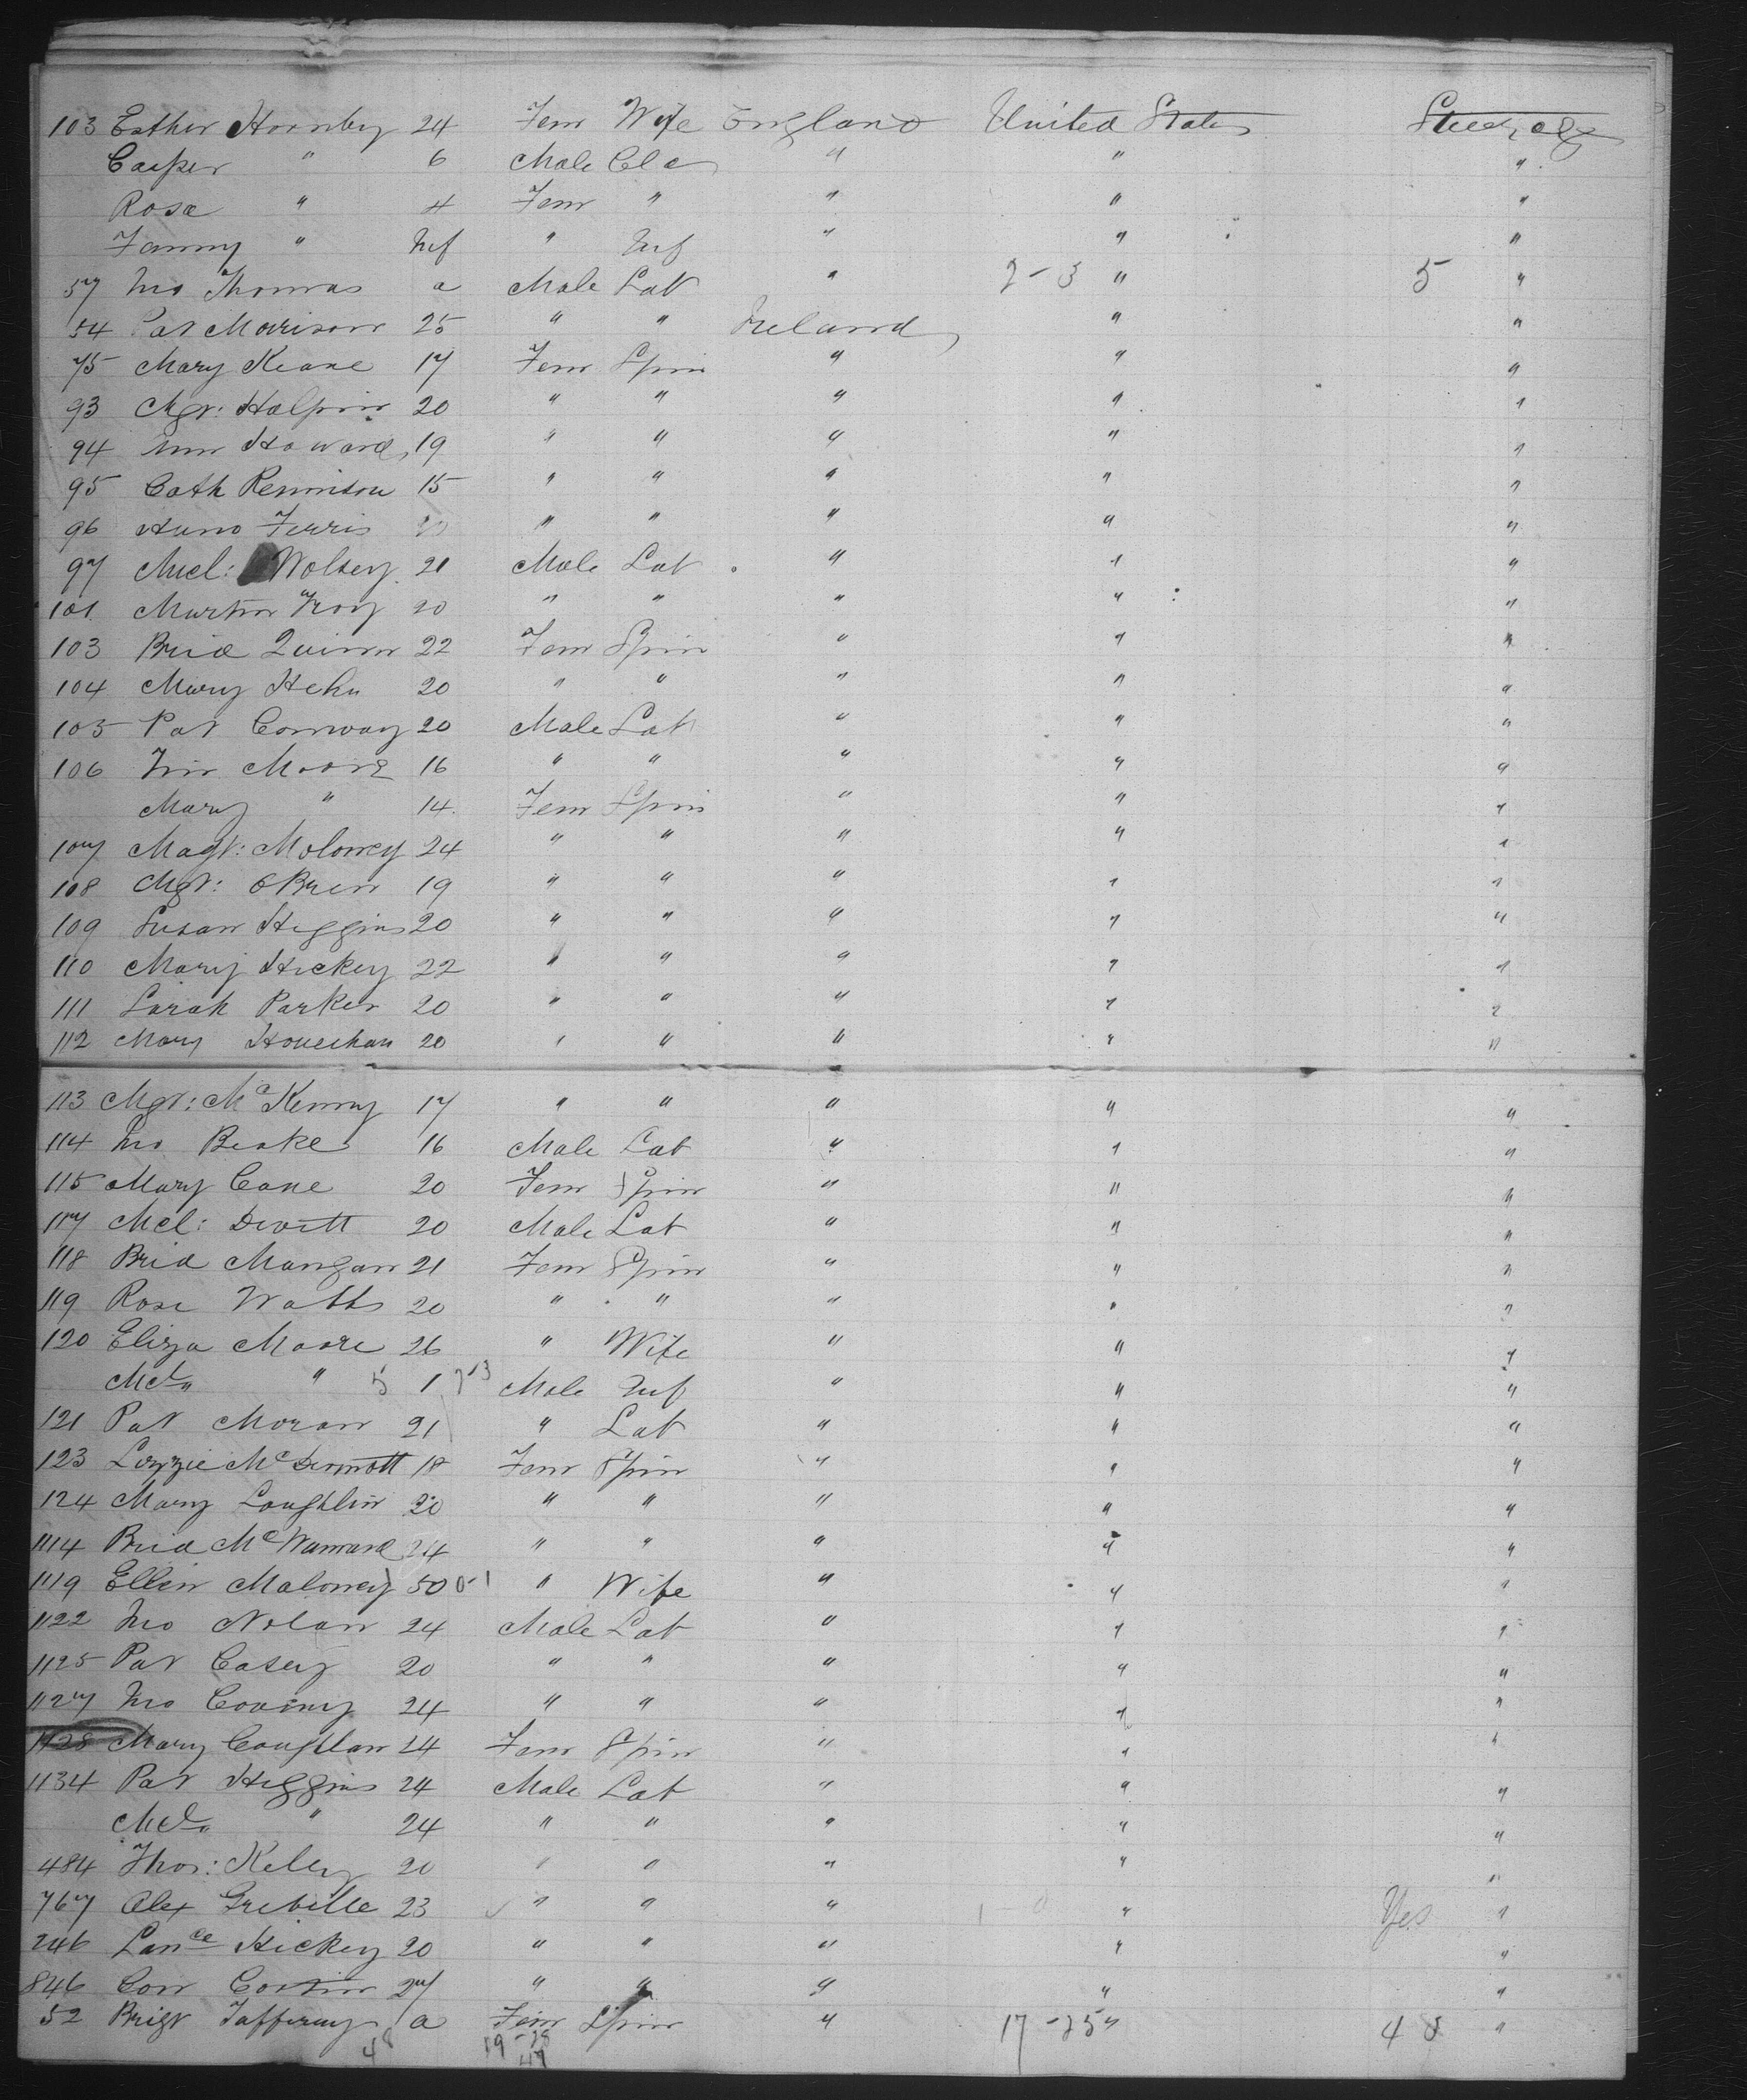 103 Esther Hornby 24 Fem Wife England United States Steerage
Casper " 6 Male Cld " " "
Rosa " 4 Fem " " " "
Fanny " Inf " Inf " " "
57 Jno Thomas a Male Lab " 2-3 " 5 "
54 Pat Morison 25 " " Ireland " "
75 Mary Keane 17 Fem Spin " " "
93 Mgt: Halpin 20 " " " " "
94 Ann Howard 19 " " " " "
95 Cath Rennison 15 " " " " "
96 Hano Ferris " " " " "
97 Micl: Wolsey 21 Male Lab " " "
101 Martin Troy 20 " " " " "
103 Brid Quinn 22 Fem Spin " " "
104 Mary Hehir 20 " " " " "
105 Pat Conway 20 Male Lab " " "
106 Tim Moore 16 " " " " "
Mary " 14 Fem Spin " " "
107 Magt: Moloney 24 " " " " "
108 Mgt: OBrien 19 " " " " "
109 Susan Higgins 20 " " " " "
110 Mary Hickey 22 " " " " "
111 Sarah Parker 20 " " " " "
112 Mary Houechan 20 " " " " "
113 Mgt: McKenny 17 " " " " "
114 Jno Beake 16 Male Lab " " "
115 Mary Cane 20 Fem Spin " " "
117 Mcl: Devitt 20 Male Lab " " "
118 Brid Mangan 21 Fem Spin " " "
119 Rose Watts 20 " " " " "
120 Eliza Moore 26 " Wife " " "
Mcl " 1 Male Inf " " "
121 Pat Moran 21 " Lab " " "
123 Lizzie McDermott 18 Fem Spin " " "
124 Mary Loughlin 20 " " " " "
1114 Brid McNamara 24 " " " " "
1119 Ellen Maloney 50 0-1 " Wife " " "
1122 Jno Nolan 24 Male Lab " " "
1125 Pat Casey 20 " " " " "
1127 Jno Coveny 24 " " " " "
1128 Mary Coughlan 24 Fem Spin " " "
1134 Pat Higgins 24 Male Lab " " "
Mcl " 24 " " " " "
484 Thos: Kelly 20 " " " " "
767 Alex Greville 23 " " " " Yes "
246 Lance Hickey 20 " " " " "
846 Con Costin 27 " " " " "
52 Brigt Taffeny a Fem Spin " 17-25 " 48 "
48 19-28
47